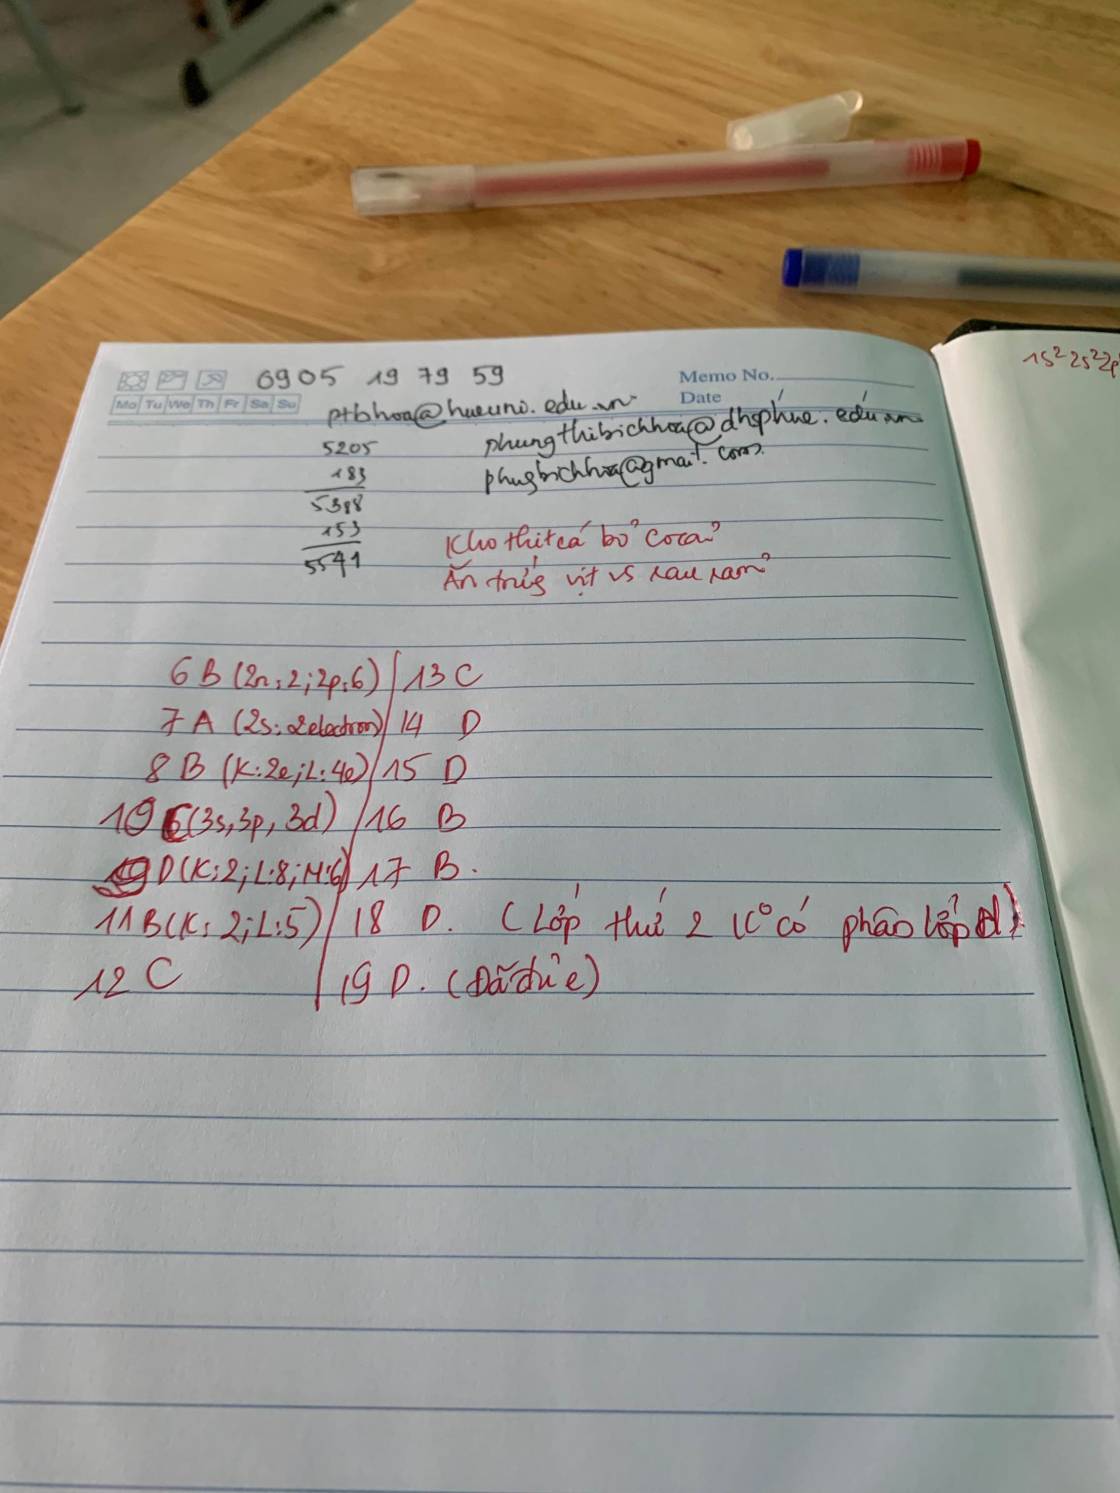 6905 19 79 59
Memo No.
Mo Tu We Th Fr Sa Su
Date
ptbhoa@hueuni.edu.vn
phungthibichhoa@dhsphue.edu.vn
phugbichhoa@gmail.com
5205
183
5388
153
5541
Kho thịt cá bỏ coca
Ăn trứg vịt vs rau răm
6 B (2n:2; 2p:6) 13 C
7 A (2s: 2electron) 14 D
8 B (K:2e; L:4e) 15 D
10 C (3s, 3p, 3d) 16 B
D (K:2; L:8; M:6) 17 B.
11 B (K: 2; L:5) 18 D. (Lớp thứ 2 K° có phân lớp d)
12 C 19 D. (Đã đủ e)
1s² 2s² 2p